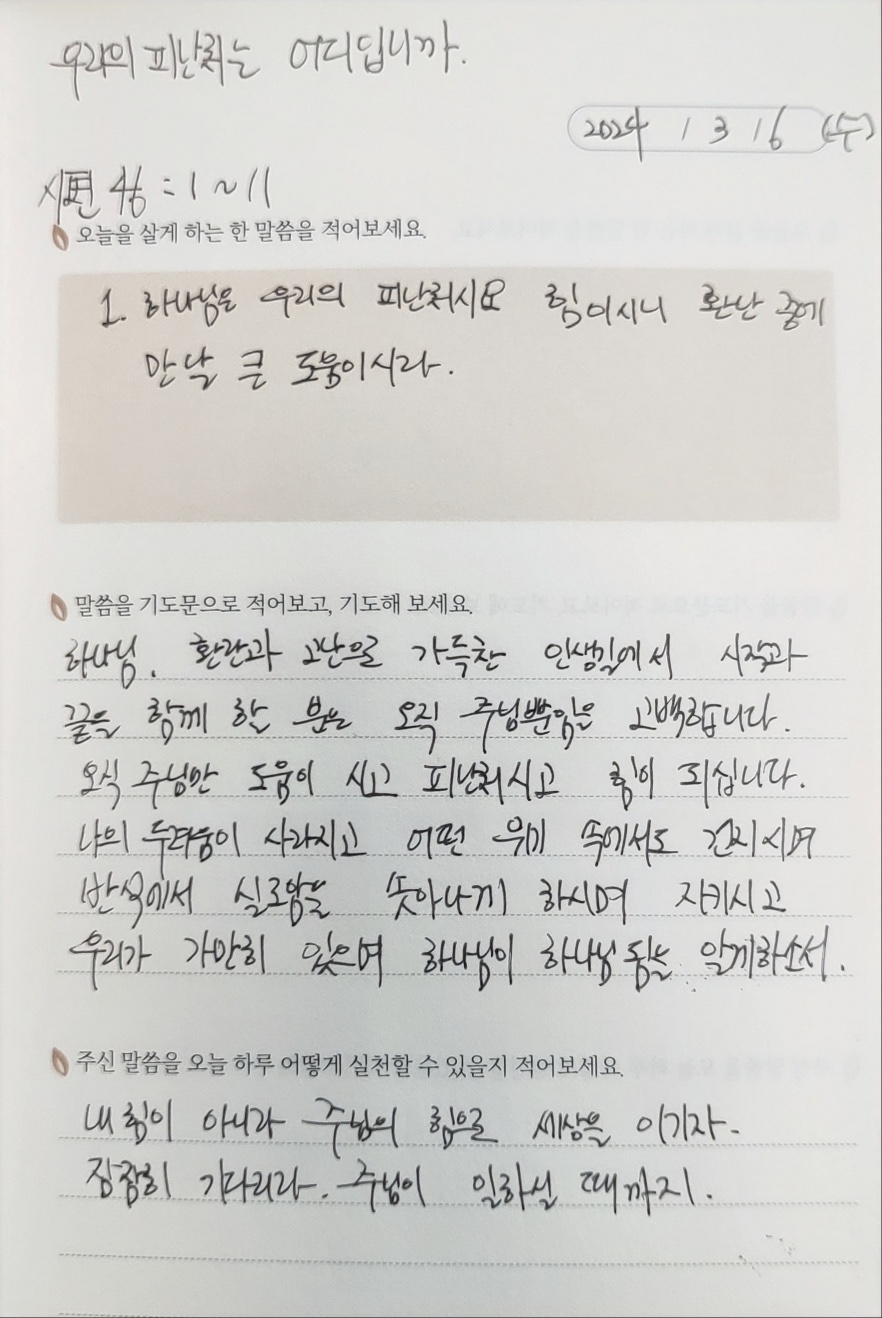 우리의 피난처는 어디입니까.
2024 / 3 / 6 (수)
시편 46 : 1 ~ 11
오늘을 살게 하는 한 말씀을 적어보세요.
1. 하나님은 우리의 피난처시요 힘이시니 환난 중에
만날 큰 도움이시라.
말씀을 기도문으로 적어보고, 기도해 보세요.
하나님. 환란과 고난으로 가득찬 인생길에서 시작과
끝을 함께 할 분은 오직 주님뿐임을 고백합니다.
오직 주님만 도움이 시고 피난처시고 힘이 되십니다.
나의 두려움이 사라지고 어떤 위기 속에서도 건지시며
반석에서 실로암을 솟아나게 하시며 지키시고
우리가 가만히 있으며 하나님이 하나님 됨을 알게하소서.
주신 말씀을 오늘 하루 어떻게 실천할 수 있을지 적어보세요.
내 힘이 아니라 주님의 힘으로 세상을 이기자.
잠잠히 기다리라. 주님이 일하실 때까지.